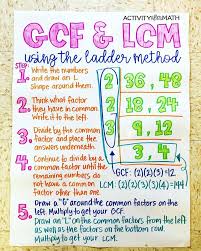 ACTIVITYAFTERMATH
GCF & LCM
using the ladder method
STEP
1. Write the numbers and draw an L Shape around them.
2 36, 48
2. Think what factor they have in common Write it to the left.
2 18, 24
3. Divide by the common factor and place the answers underneath.
3 9, 12
3, 4
4. Continue to divide by a common factor until the remaining numbers do not have a common factor other than one.
GCF: (2)(2)(3)=12
LCM: (2)(2)(3)(3)(4)=144
5. Draw a "G" around the common factors on the left. Multiply to get your GCF.
Draw an "L" on the common factors from the left as well as the factors on the bottom row. Multiply to get your LCM.